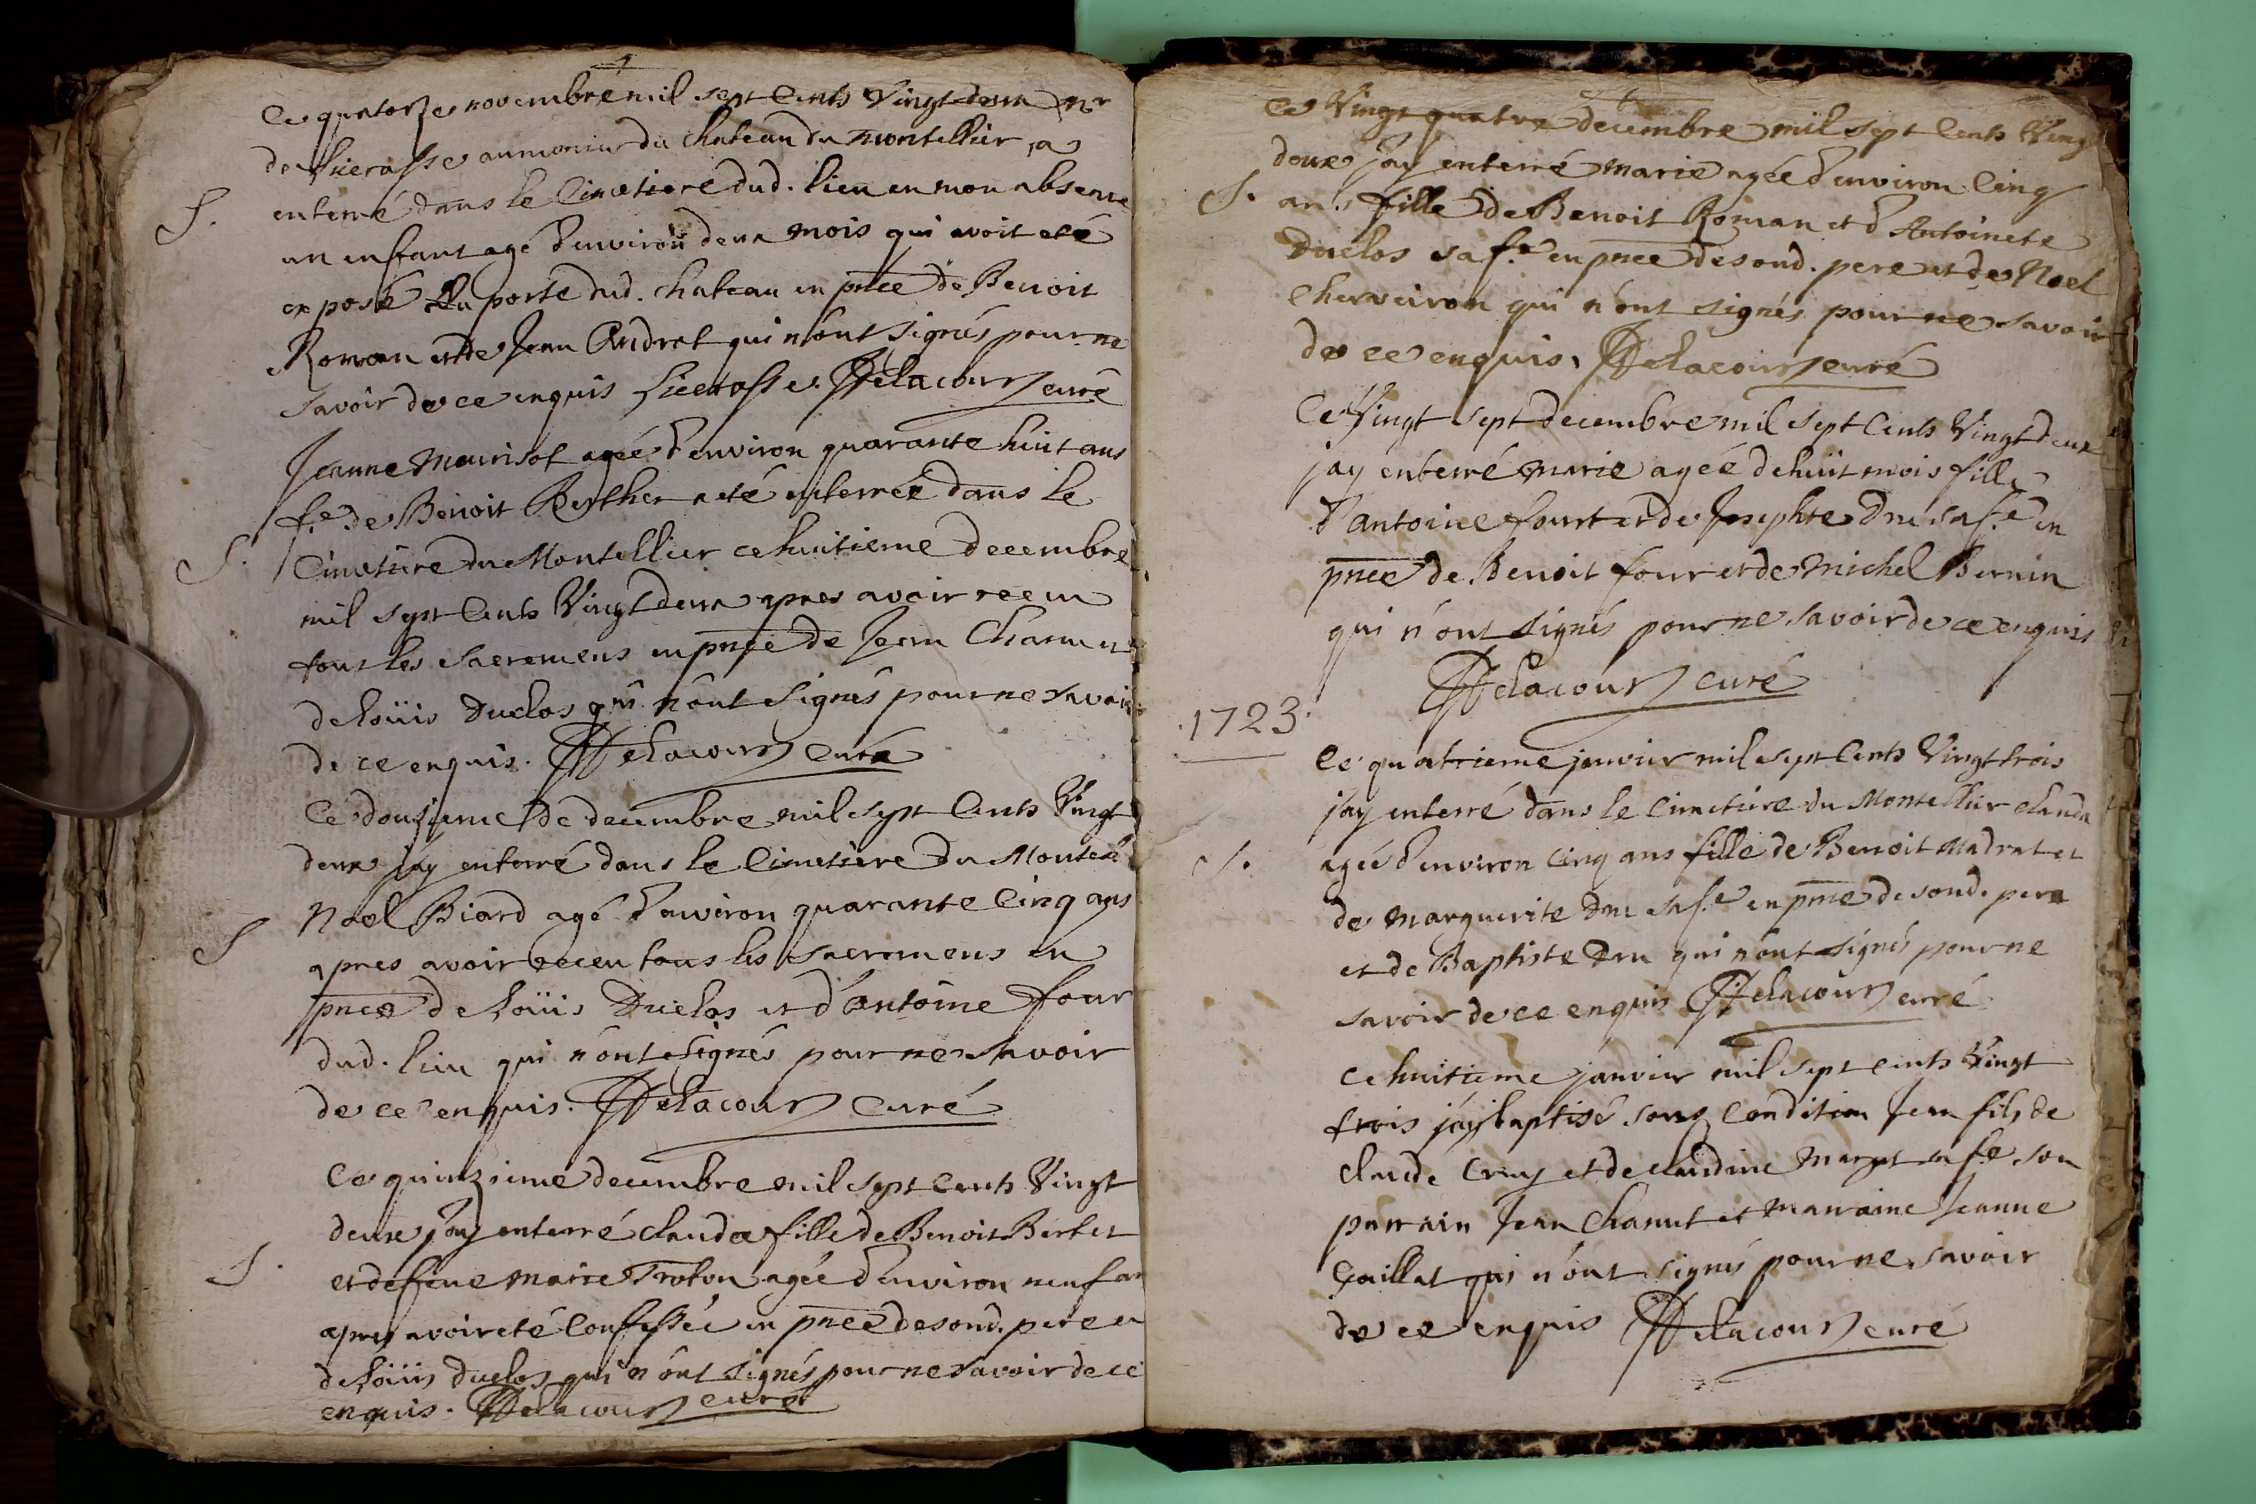 Ce quatorze novembre mil sept cents vingt deux Mr
de Ficerasse aumonier du chateau du montellier, a
S. enterré dans le cimetiere dud. lieu en mon absence
un enfant agé d'environ deux mois qui avoit eté
exposé a la porte dud. chateau en pnce de Benoit
Roman et de Jean Andret qui n'ont signés pour ne
savoir de ce enquis Ficerasse. Delacour curé
Jeanne Maurisot agée d'environ quarante huit ans
f.e de Benoit Berthet a eté enterrée dans le
S. Cimetiere du Montellier ce huitieme decembre
mil sept cents vingt deux apres avoir receu
tous les sacremens en pnce de Jean Chanut et
de Loüis Duclos qui n'ont signés pour ne savoir
de ce enquis. Delacour curé
Ce douzieme de decembre mil sept cents vingt
deux j'ay enterré dans le cimetiere du Montelli
Noel Biard agé d'environ quarante cinq ans
S apres avoir receu tous les sacremens en
pnce de Loüis Duclos et d'Antoine four
dud. lieu qui n'ont signés pour ne savoir
de ce enquis. Delacour curé
Ce quinzieme decembre mil sept cents vingt
deux j'ay enterré clauda fille de Benoit Bertet
S. et de feue marie Troton agée d'environ neuf an
apres avoir eté confessée en pnce de sond. pere et
de Loüis duclos qui n'ont signés pour ne savoir de ce
enquis. Delacour curé
Ce vingt quatre decembre mil sept cents vingt
deux j'ay enterré marie agée d'environ cinq
S. ans fille de Benoit Roman et d'Antoinete
Duclos sa f.e en pnce de sond. pere et de Noel
Cherveiron qui n'ont signés pour ne savoir
de ce enquis, Delacour curé
Ce vingt sept decembre mil sept cents vingt deux
j'ay enterré marie agée de huit mois fille
d'antoine fourt et de Josephte Dru sa f.e en
pnce de Benoit four et de Michel Bernin
qui n'ont signés pour ne savoir de ce enquis
Delacour curé
.1723.
Ce quatrieme janvier mil sept cents vingt trois
j'ay enterré dans le cimetiere du Montellier clauda
S. agée d'environ cinq ans fille de Benoit Madret et
de Marguerite Dru sa f.e en pnce de sond. pere
et de Baptiste Dru qui n'ont signés pour ne
savoir de ce enquis Delacour curé
Ce huitieme janvier mil sept cents vingt
trois j'ay baptisé sous condition Jean fils de
claude Cruy et de claudine Marget sa f.e son
parrain Jean Chanut et marraine Jeanne
Caillat qui n'ont signés pour ne savoir
de ce enquis Delacour curé